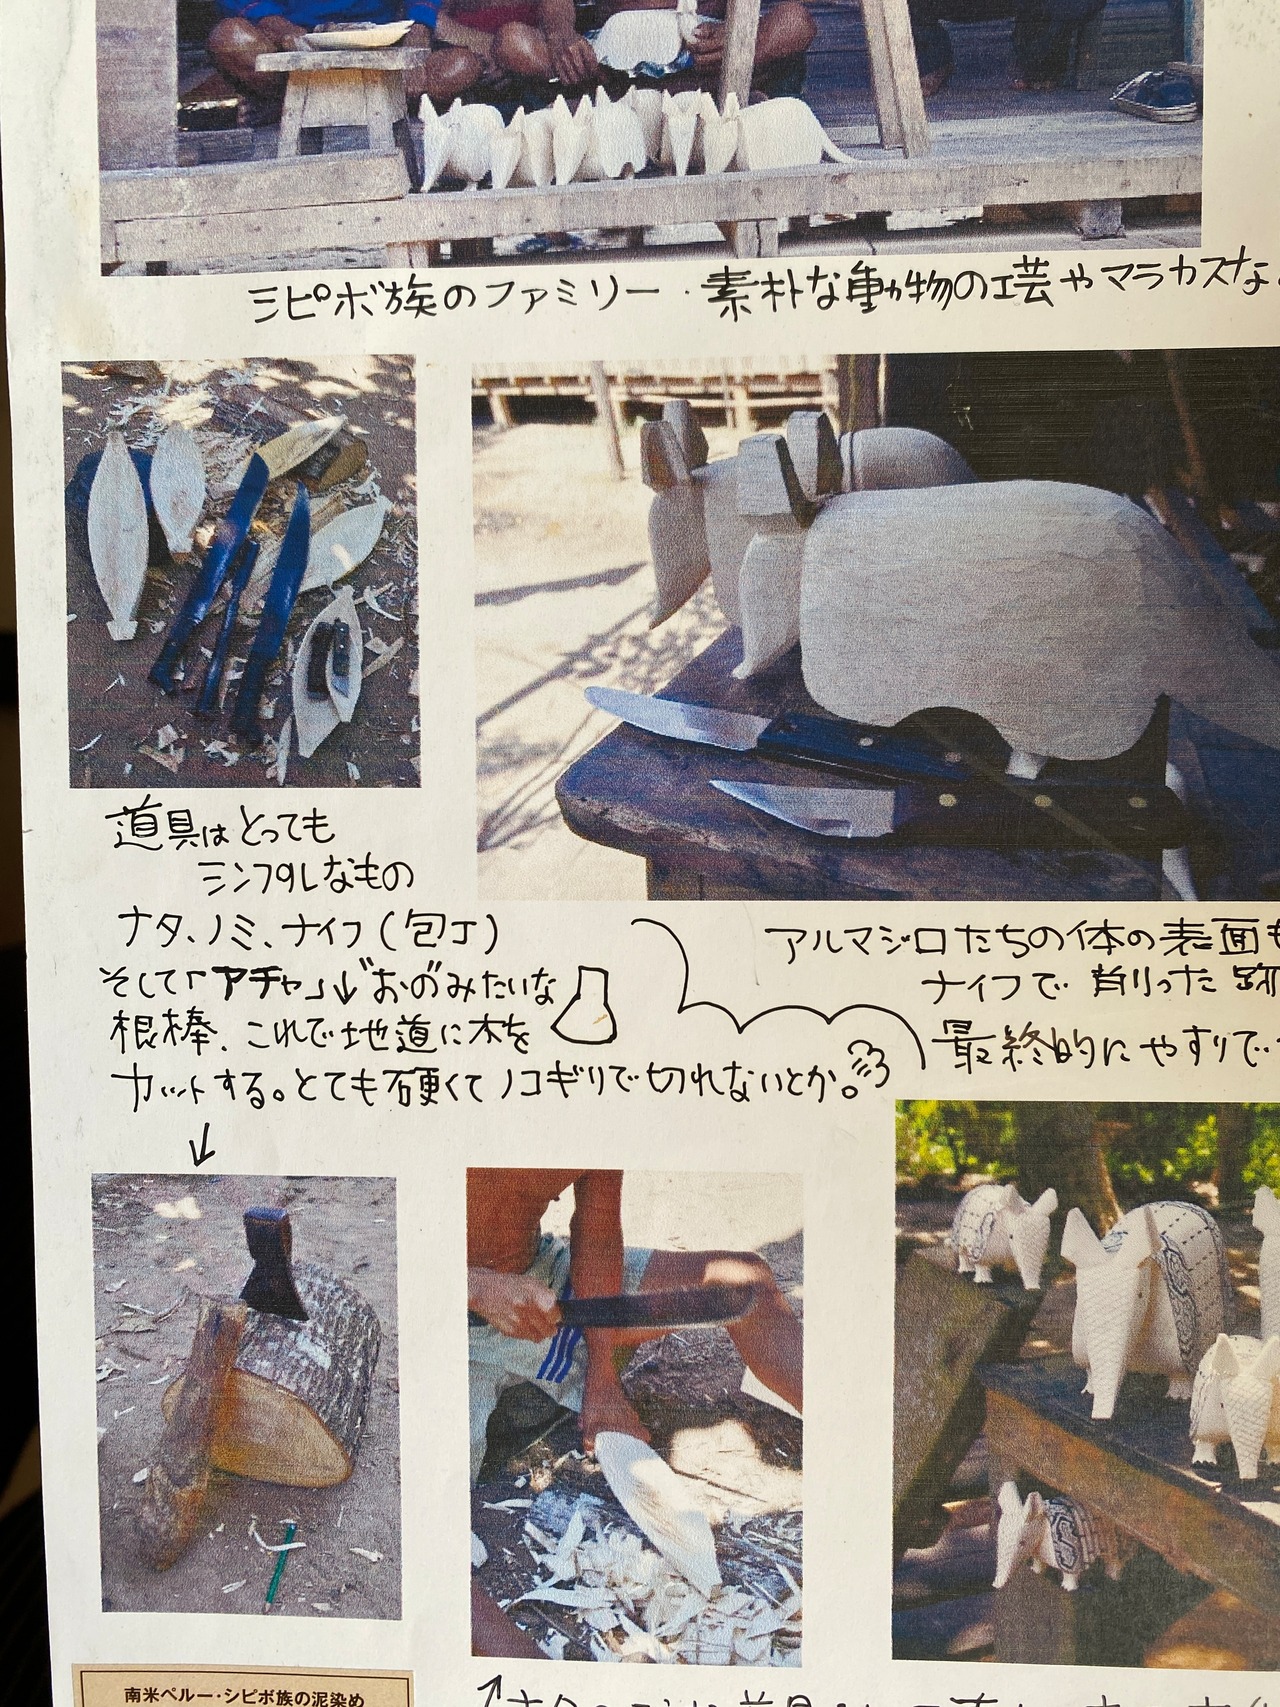 シピボ族のファミリー・素朴な動物の工芸やマラカスな
道具はとっても
シンプルなもの
ナタ、ノミ、ナイフ(包丁)
そして「アチャ」↓"おの"みたいな
根棒、これで地道に木を
カットする。とても硬くてノコギリで切れないとか。
アルマジロたちの体の表面も
ナイフで削った跡
最終的にやすりで
南米ペルー・シピボ族の泥染め